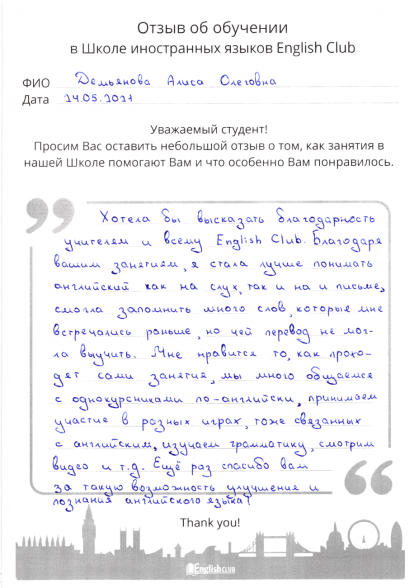 Отзыв об обучении
в Школе иностранных языков English Club
ФИО Демьянова Алиса Олеговна
Дата 24.05.2021
Уважаемый студент!
Просим Вас оставить небольшой отзыв о том, как занятия в
нашей Школе помогают Вам и что особенно Вам понравилось.
Хотела бы высказать благодарность
учителям и всему English Club. Благодаря
вашим занятиям, я стала лучше понимать
английский как на слух, так и на и письме,
смогла запомнить много слов, которые мне
встречались раньше, но чей перевод не мог-
ла выучить. Мне нравится то, как прохо-
дят сами занятия, мы много общаемся
с однокурсниками по-английски, принимаем
участие в разных играх, тоже связанных
с английским, изучаем грамматику, смотрим
видео и т.д. Ещё раз спасибо вам
за такую возможность улучшения и
познания английского языка!
Thank you!
English CLUB